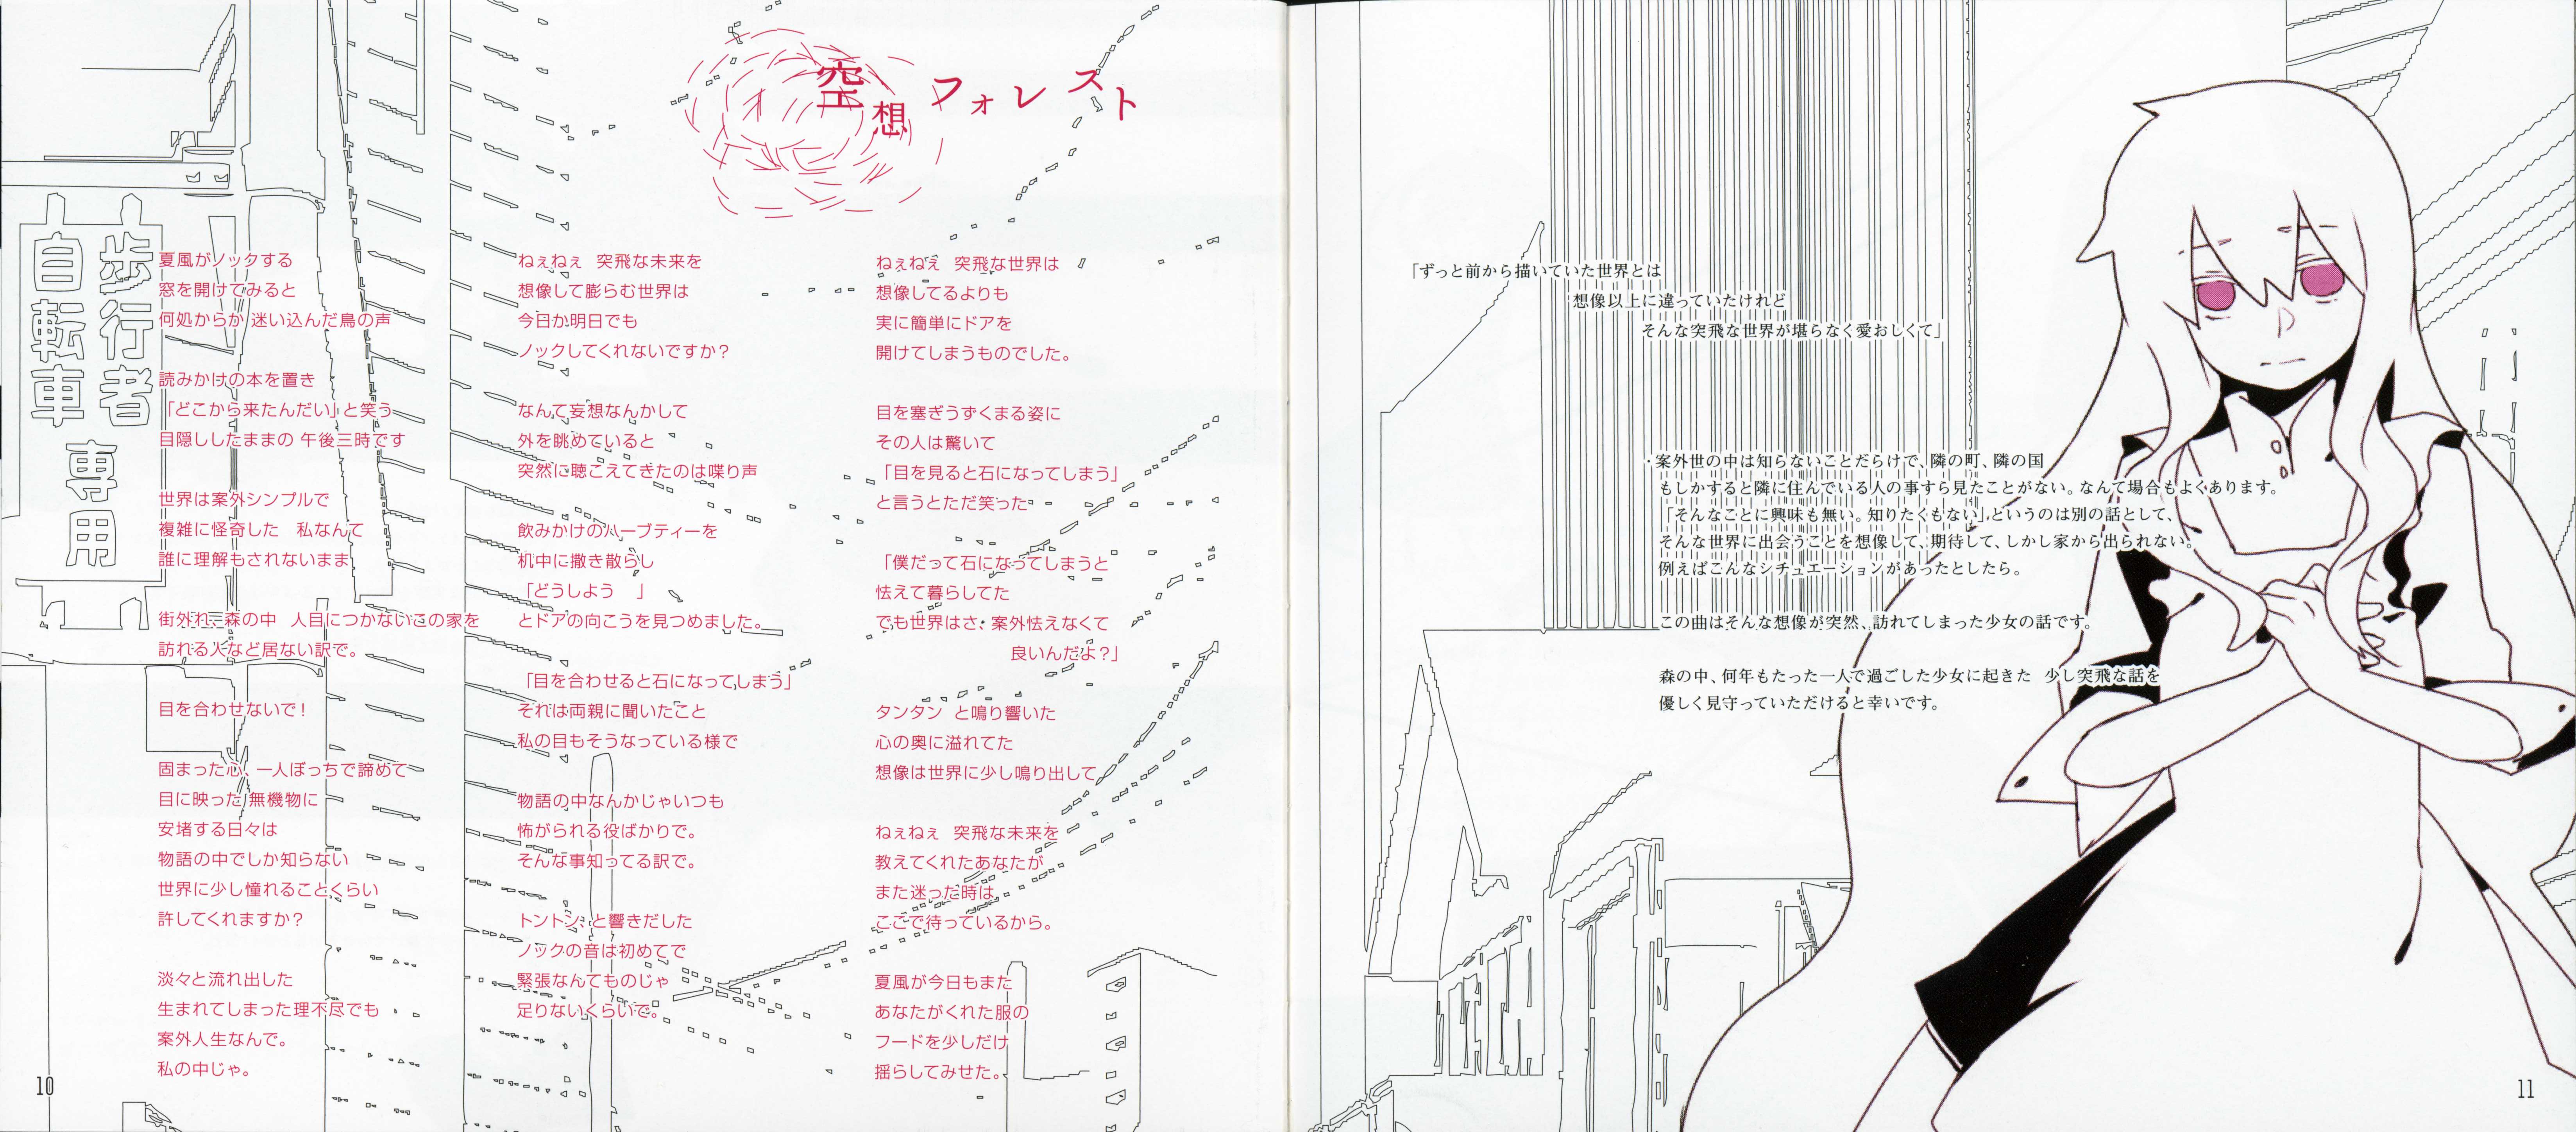 空想フォレスト
自転車
歩行者
専用
夏風がノックする
窓を開けてみると
何処からか 迷い込んだ鳥の声
読みかけの本を置き
「どこから来たんだい」と笑う
目隠ししたままの 午後三時です
世界は案外シンプルで
複雑に怪奇した 私なんて
誰に理解もされないまま
街外れ、森の中 人目につかないこの家を
訪れる人など居ない訳で。
目を合わせないで!
固まった心、一人ぼっちで諦めて
目に映った 無機物に
安堵する日々は
物語の中でしか知らない
世界に少し憧れることくらい
許してくれますか?
淡々と流れ出した
生まれてしまった理不尽でも
案外人生なんで。
私の中じゃ。
ねぇねぇ 突飛な未来を
想像して膨らむ世界は
今日か明日でも
ノックしてくれないですか?
なんて妄想なんかして
外を眺めていると
突然に聴こえてきたのは喋り声
飲みかけのハーブティーを
机中に撒き散らし
「どうしよう 」
とドアの向こうを見つめました。
「目を合わせると石になってしまう」
それは両親に聞いたこと
私の目もそうなっている様で
物語の中なんかじゃいつも
怖がられる役ばかりで。
そんな事知ってる訳で。
トントン、と響きだした
ノックの音は初めてで
緊張なんてものじゃ
足りないくらいで。
ねぇねぇ 突飛な世界は
想像してるよりも
実に簡単にドアを
開けてしまうものでした。
目を塞ぎうずくまる姿に
その人は驚いて
「目を見ると石になってしまう」
と言うとただ笑った
「僕だって石になってしまうと
怯えて暮らしてた
でも世界はさ、案外怯えなくて
良いんだよ?」
タンタン と鳴り響いた
心の奥に溢れてた
想像は世界に少し鳴り出して
ねぇねぇ 突飛な未来を
教えてくれたあなたが
また迷った時は
ここで待っているから。
夏風が今日もまた
あなたがくれた服の
フードを少しだけ
揺らしてみせた。
10
「ずっと前から描いていた世界とは
想像以上に違っていたけれど
そんな突飛な世界が堪らなく愛おしくて」
・案外世の中は知らないことだらけで、隣の町、隣の国
もしかすると隣に住んでいる人の事すら見たことがない。なんて場合もよくあります。
「そんなことに興味も無い。知りたくもない」というのは別の話として、
そんな世界に出会うことを想像して、期待して、しかし家から出られない。
例えばこんなシチュエーションがあったとしたら。
この曲はそんな想像が突然、訪れてしまった少女の話です。
森の中、何年もたった一人で過ごした少女に起きた 少し突飛な話を
優しく見守っていただけると幸いです。
11